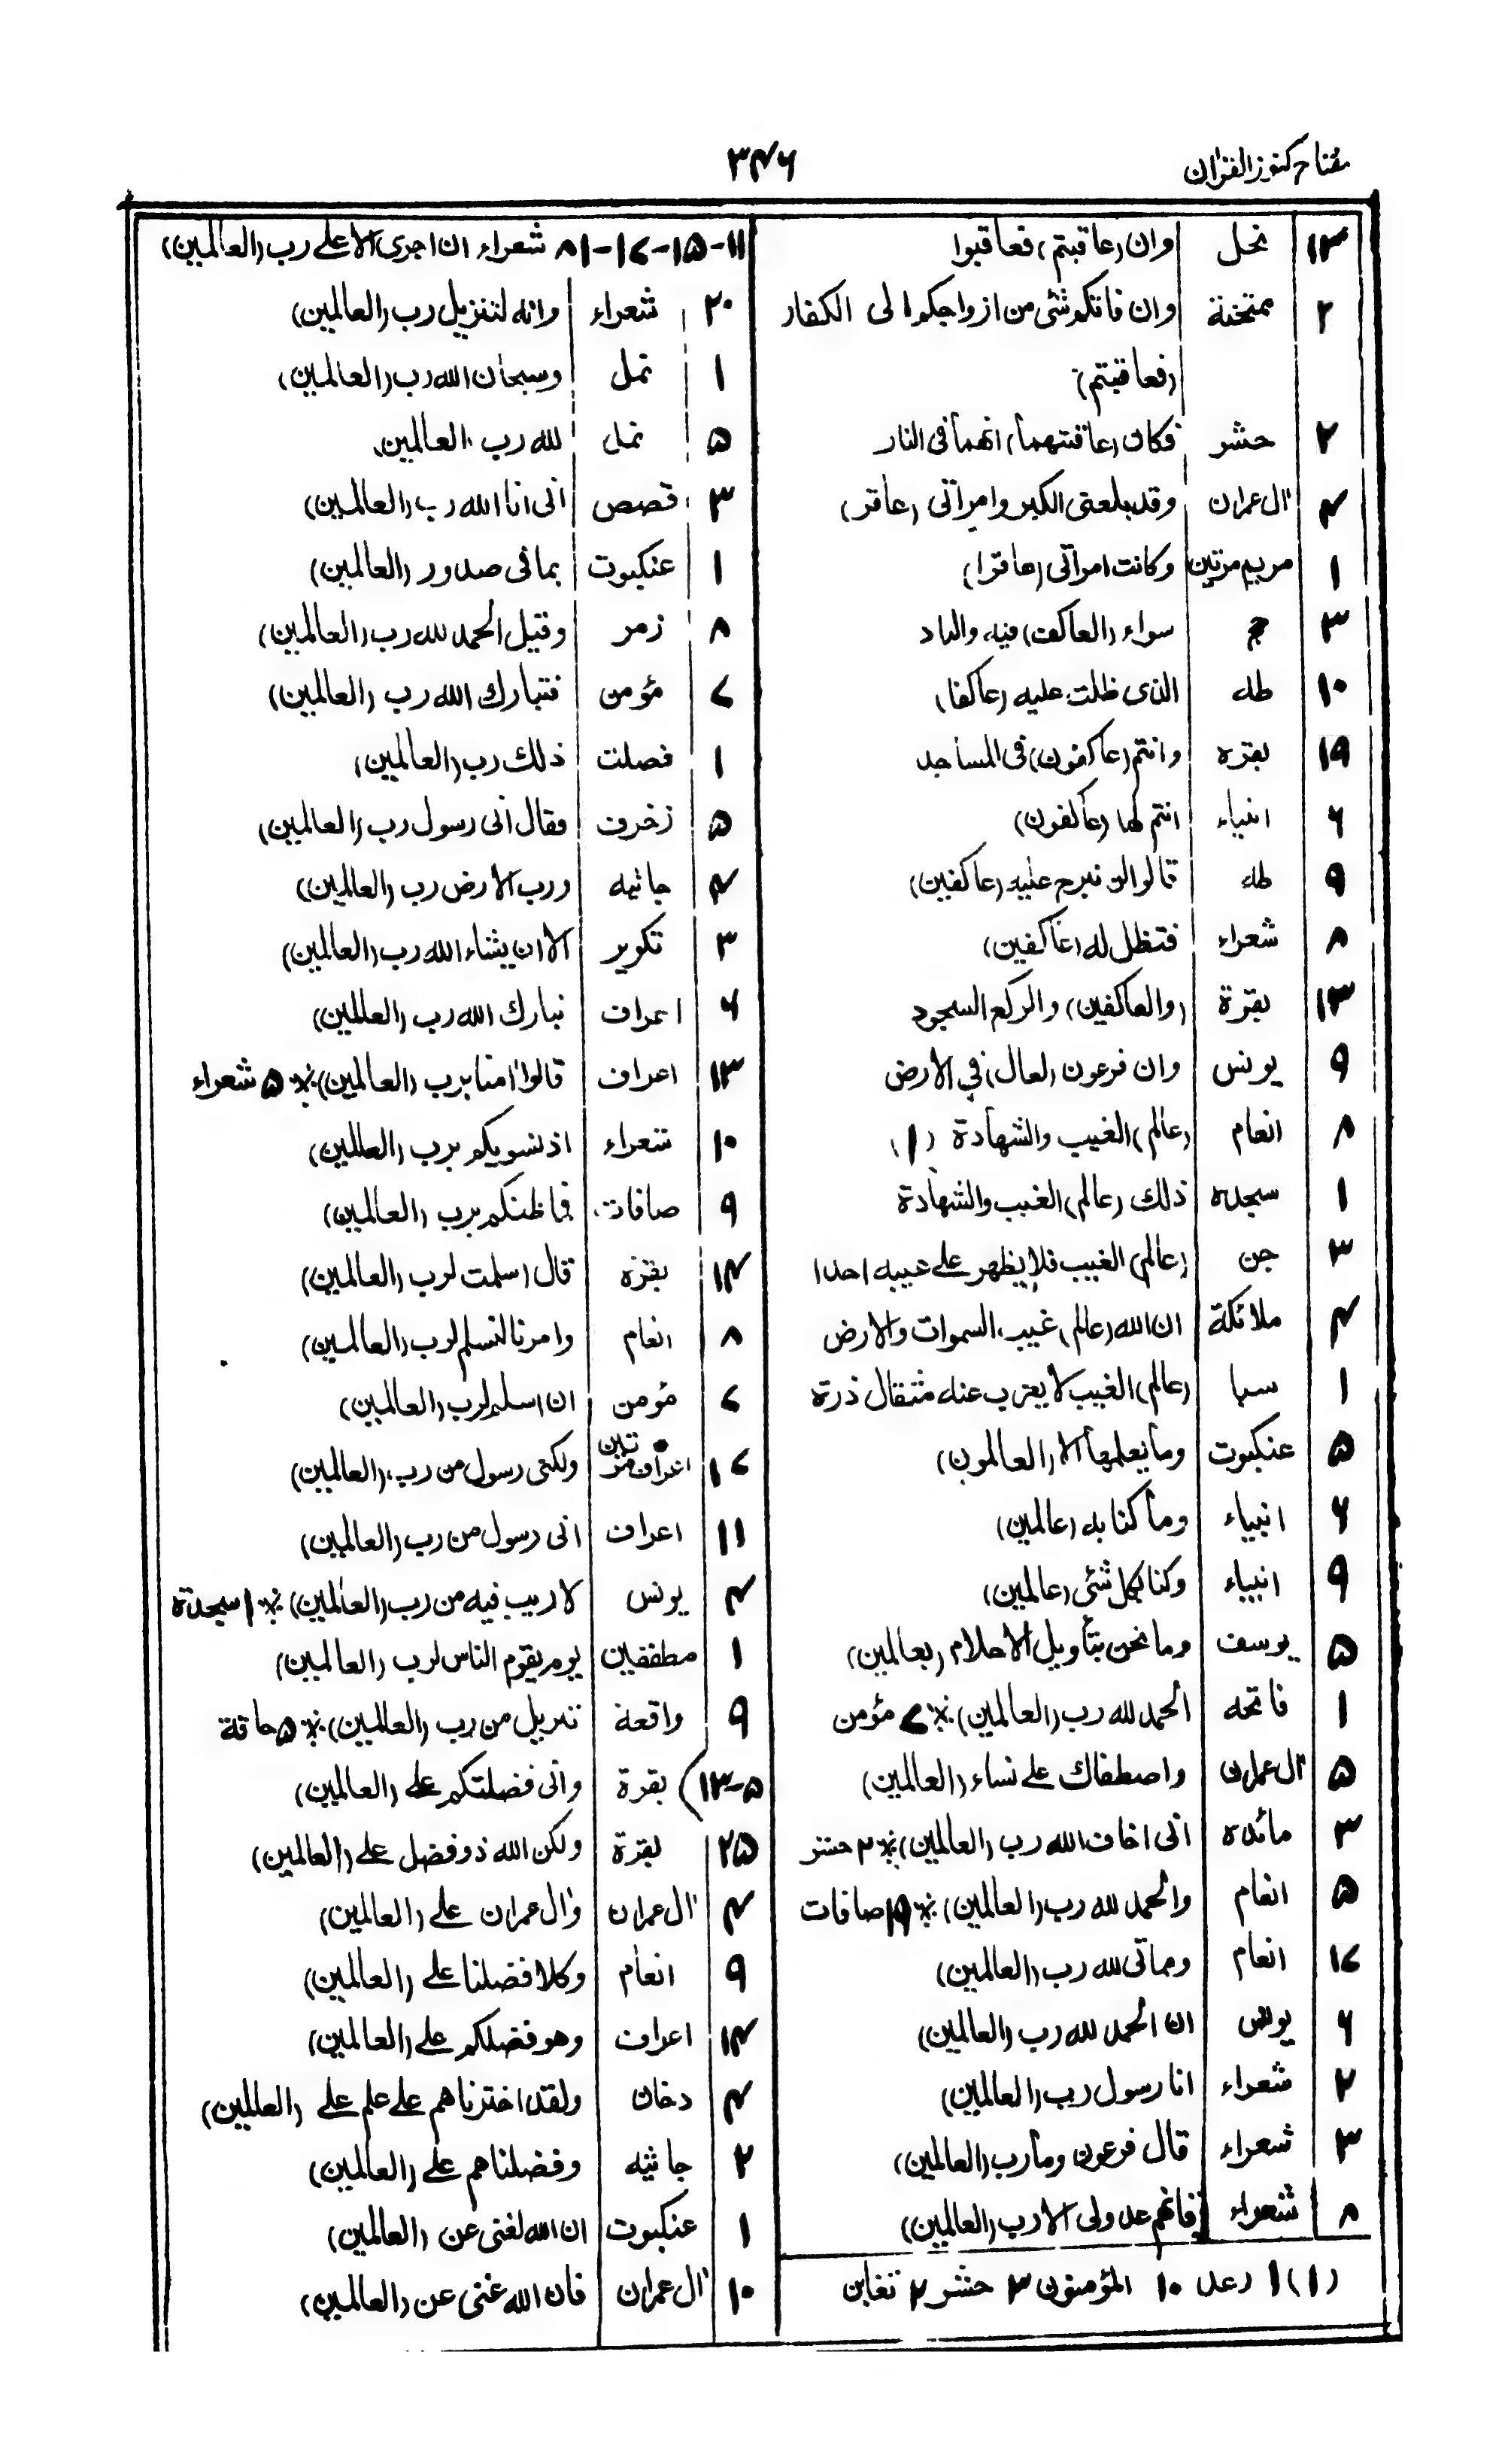 مفتاح کنوز القرآن
۳۴۶
۱۳ نحل وان (عاقبتم) فعاقبوا
۲ ممتحنة وان فاتکم شئ من ازواجکم الی الکفار
(فعاقبتم)
۲ حشر فکان (عاقبتهما) انهما فی النار
۴ آل عمران وقد بلغنی الکبر وامراتی (عاقر)
۱ مریم مرتین وکانت امراتی (عاقرا)
۳ حج سواء (العاکف) فیه والباد
۱۰ طه الذی ظلت علیه (عاکفا)
۱۹ بقره وانتم (عاکفون) فی المساجد
۶ انبیاء انتم لها (عاکفون)
۹ طه قالوا لن نبرح علیه (عاکفین)
۸ شعراء فنظل له (عاکفین)
۱۳ بقرة (والعاکفین) والرکع السجود
۹ یونس وان فرعون (لعال) فی الارض
۸ انعام (عالم) الغیب والشهادة (۱)
۱ سجده ذلك (عالم) الغیب والشهادة
۳ جن (عالم) الغیب فلا یظهر علی غیبه احدا
۴ ملائکة ان الله (عالم) غیب السموات والارض
۱ سبا (عالم) الغیب لا یعزب عنه مثقال ذرة
۵ عنکبوت وما یعلمها الا (العالمون)
۶ انبیاء وما کنا به (عالمین)
۹ انبیاء وکنا بکل شئی (عالمین)
۵ یوسف وما نحن بتأویل الاحلام (بعالمین)
۱ فاتحه الحمد لله رب (العالمین) ※ ۷ مؤمن
۵ آل عمران واصطفاك علی نساء (العالمین)
۳ مائده انی اخاف الله رب (العالمین) ※ ۲ حشر
۵ انعام والحمد لله رب (العالمین) ※ صافات
۱۷ انعام ومماتی لله رب (العالمین)
۶ یونس ان الحمد لله رب (العالمین)
۲ شعراء انا رسول رب (العالمین)
۳ شعراء قال فرعون وما رب (العالمین)
۸ شعراء فانهم عدو لی الا رب (العالمین)
(۱) ۱ رعد ۱۰ المؤمنون ۳ حشر ۲ تغابن
۱۱-۱۵-۱۶-۸۱ شعراء ان اجری الا علی رب (العالمین)
۲۰ شعراء وانه لتنزیل رب (العالمین)
۱ نمل وسبحان الله رب (العالمین)
۵ نمل لله رب العالمین
۳ قصص انی انا الله رب (العالمین)
۱ عنکبوت بما فی صدور (العالمین)
۸ زمر وقیل الحمد لله رب (العالمین)
۷ مؤمن فتبارك الله رب (العالمین)
۱ فصلت ذلك رب (العالمین)
۵ زخرف فقال انی رسول رب (العالمین)
۴ جاثیه ورب الارض رب (العالمین)
۳ تکویر الا ان یشاء الله رب (العالمین)
۶ اعراف تبارك الله رب (العالمین)
۱۳ اعراف قالوا امنا برب (العالمین) ※ ۵ شعراء
۱۰ شعراء اذ نسویکم برب (العالمین)
۹ صافات فما ظنکم برب (العالمین)
۱۴ بقره قال اسلمت لرب (العالمین)
۸ انعام وامرنا لنسلم لرب (العالمین)
۷ مؤمن ان اسلم لرب (العالمین)
۱۶ اعراف مرتین ولکنی رسول من رب (العالمین)
۱۱ اعراف انی رسول من رب (العالمین)
۴ یونس لا ریب فیه من رب (العالمین) ※ ۱ سجدة
۱ مطففین یوم یقوم الناس لرب (العالمین)
۹ واقعة تنزیل من رب (العالمین) ※ ۵ حاقة
۵-۱۳) بقرة وانی فضلتکم علی (العالمین)
۲۵ بقرة ولکن الله ذو فضل علی (العالمین)
۴ آل عمران وآل عمران علی (العالمین)
۹ انعام وکلا فضلنا علی (العالمین)
۱۴ اعراف وهو فضلکم علی (العالمین)
۴ دخان ولقد اخترناهم علی علم علی (العالمین)
۲ جاثیه وفضلناهم علی (العالمین)
۱ عنکبوت ان الله لغنی عن (العالمین)
۱۰ آل عمران فان الله غنی عن (العالمین)